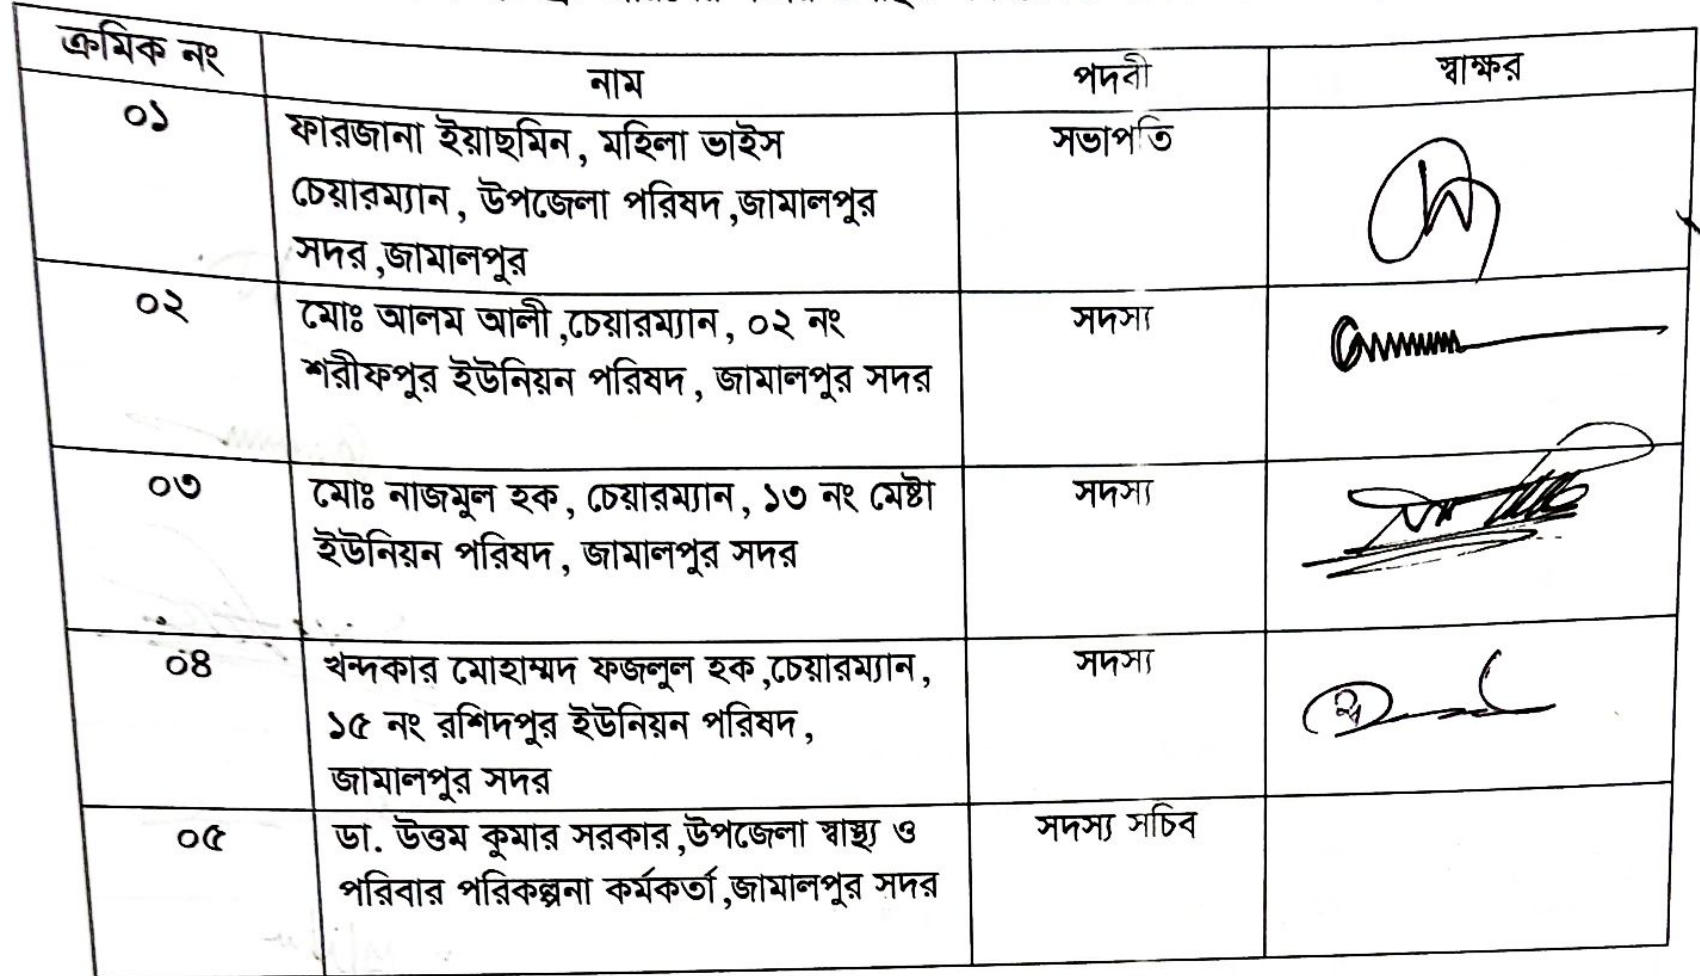 ক্রমিক নং নাম পদবী স্বাক্ষর
০১ ফারজানা ইয়াছমিন, মহিলা ভাইস সভাপতি
চেয়ারম্যান, উপজেলা পরিষদ,জামালপুর
সদর,জামালপুর
০২ মোঃ আলম আলী,চেয়ারম্যান, ০২ নং সদস্য
শরীফপুর ইউনিয়ন পরিষদ, জামালপুর সদর
০৩ মোঃ নাজমুল হক, চেয়ারম্যান, ১৩ নং মেষ্টা সদস্য
ইউনিয়ন পরিষদ, জামালপুর সদর
০৪ খন্দকার মোহাম্মদ ফজলুল হক,চেয়ারম্যান, সদস্য
১৫ নং রশিদপুর ইউনিয়ন পরিষদ,
জামালপুর সদর
০৫ ডা. উত্তম কুমার সরকার,উপজেলা স্বাস্থ্য ও সদস্য সচিব
পরিবার পরিকল্পনা কর্মকর্তা,জামালপুর সদর